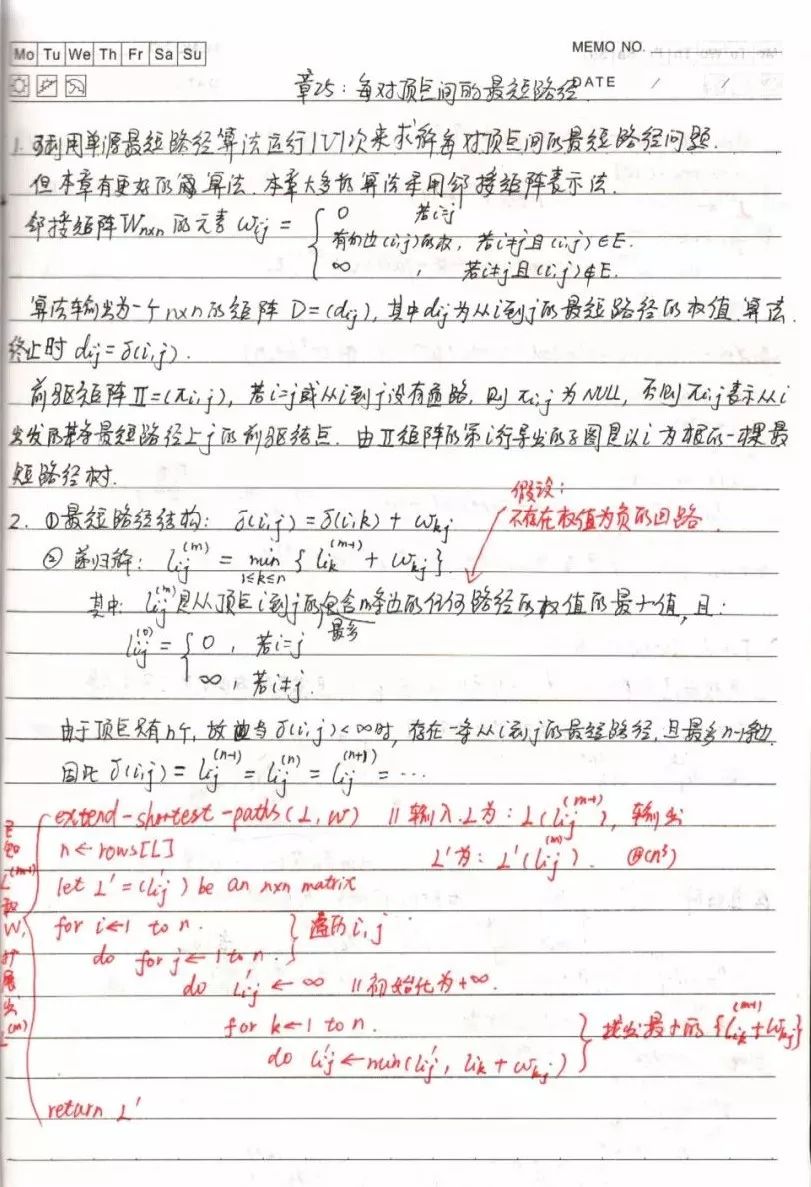 Mo Tu We Th Fr Sa Su
MEMO NO.
DATE / /
章25:每对顶点间的最短路径
1. 可利用单源最短路径算法运行|V|次来求解每对顶点间的最短路径问题.
但本章有更好的算法.本章大多数算法采用邻接矩阵表示法.
邻接矩阵Wn×n的元素 ωij = { 0 若i=j
有向边(i,j)的权, 若i≠j且(i,j)∈E.
∞ , 若i≠j且(i,j)∉E.
算法输出为一个n×n的矩阵 D=(dij), 其中dij为从i到j的最短路径的权值.算法
终止时 dij=δ(i,j).
前驱矩阵Π=(πi,j), 若i=j或从i到j没有通路, 则πi,j为NULL, 否则πi,j表示从i
出发的某条最短路径上j的前驱结点. 由Π矩阵的第i行导出的子图是以i为根的一棵最
短路径树.
假设:
不存在权值为负的回路
2. ①最短路径结构: δ(i,j)=δ(i,k)+ωkj
② 递归解: lij^(m) = min 1≤k≤n { lik^(m-1) + ωkj }
其中: lij^(m)是从顶点i到j的包含m条边的任何路径的权值的最小值, 且:
最多
lij^(0) = { 0 , 若i=j
∞, 若i≠j.
由于顶点只有n个, 故当δ(i,j)<∞时, 存在一条从i到j的最短路径,且最多n-1条边.
因此 δ(i,j) = lij^(n-1) = lij^(n) = lij^(n+1) = ⋯
extend-shortest-paths(L, W) // 输入L为: L(lij^(m-1)), 输出
n←rows[L] L'为: L'(lij^(m)). Θ(n³)
let L'=(l'ij) be an n×n matrix
for i←1 to n. } 遍历i,j
do for j←1 to n.
do l'ij ← ∞ // 初始化为+∞.
for k←1 to n. } 找出最小的{lik^(m-1)+ωkj}
do l'ij ← min(l'ij, lik+ωkj)
return L'
已知L^(m-1)和W, 扩展出L^(m)